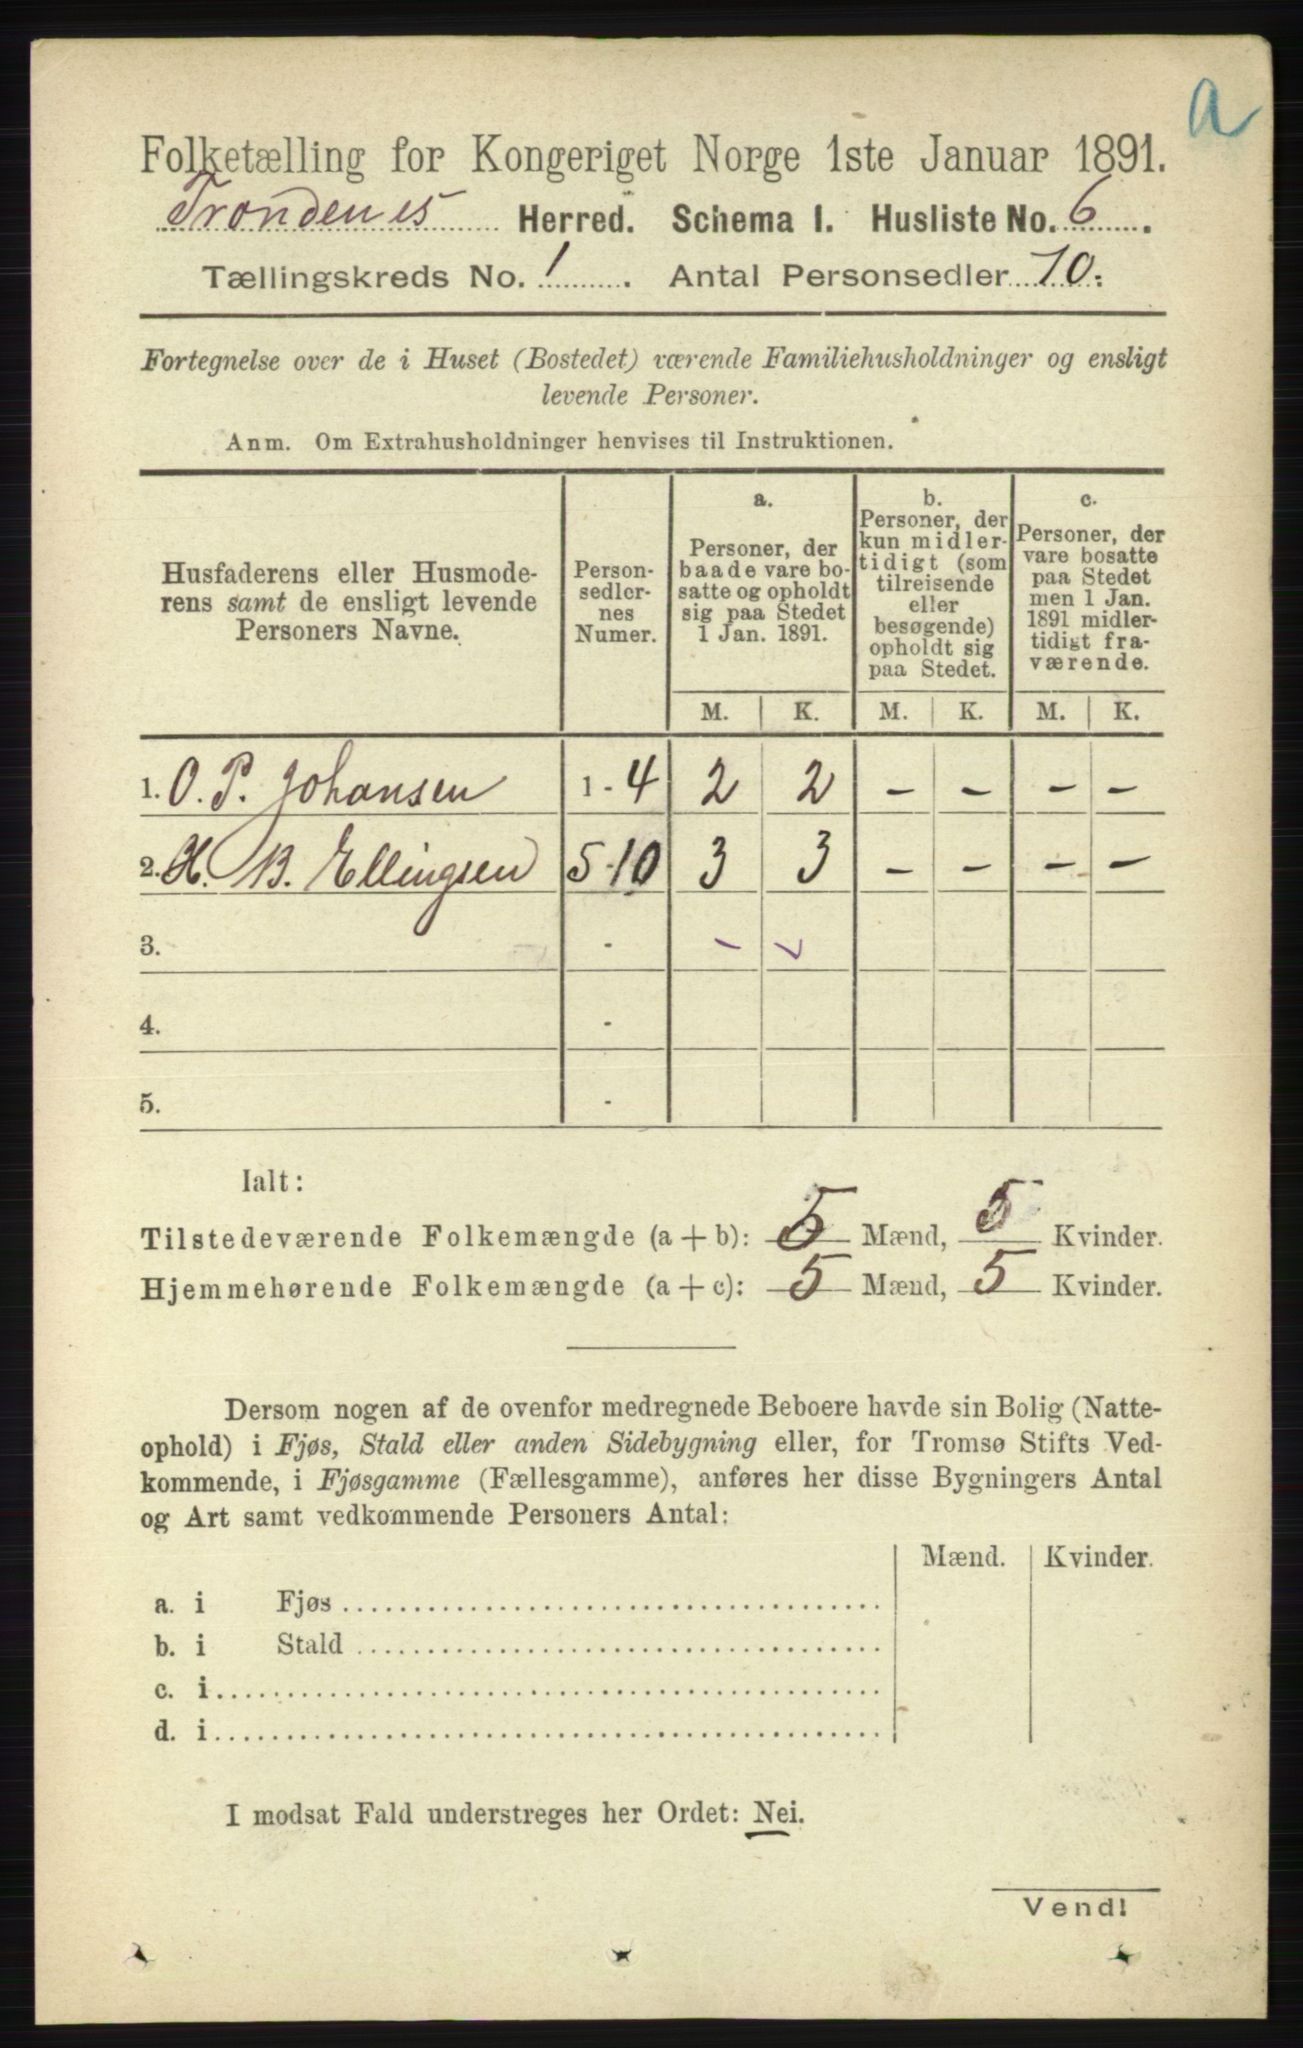 a
Folketælling for Kongeriget Norge 1ste Januar 1891.
Trondenes Herred. Schema 1. Husliste No. 6.
Tællingskreds No. 1. Antal Personsedler 10.
Fortegnelse over de i Huset (Bostedet) værende Familiehusholdninger og ensligt
levende Personer.
Anm. Om Extrahusholdninger henvises til Instruktionen.
Husfaderens eller Husmode-
rens samt de ensligt levende
Personers Navne.
Person-
sedler-
nes
Numer.
a.
Personer, der
baade vare bo-
satte og opholdt
sig paa Stedet
1 Jan. 1891.
b.
Personer, der
kun midler-
tidigt (som
tilreisende
eller
besøgende)
opholdt sig
paa Stedet.
c.
Personer, der
vare bosatte
paa Stedet
men 1 Jan.
1891 midler-
tidigt fra-
værende.
M. K. M. K. M. K.
1. O. P. Johansen 1-4 2 2 - - - -
2. H. B. Ellingsen 5-10 3 3 - - - -
3. -
4. -
5. -
Ialt:
Tilstedeværende Folkemængde (a + b): 5 Mænd, 5 Kvinder.
Hjemmehørende Folkemængde (a + c): 5 Mænd, 5 Kvinder.
Dersom nogen af de ovenfor medregnede Beboere havde sin Bolig (Natte-
ophold) i Fjøs, Stald eller anden Sidebygning eller, for Tromsø Stifts Ved-
kommende, i Fjøsgamme (Fællesgamme), anføres her disse Bygningers Antal
og Art samt vedkommende Personers Antal:
Mænd. Kvinder.
a. i Fjøs
b. i Stald
c. i
d. i
I modsat Fald understreges her Ordet: Nei.
Vend!